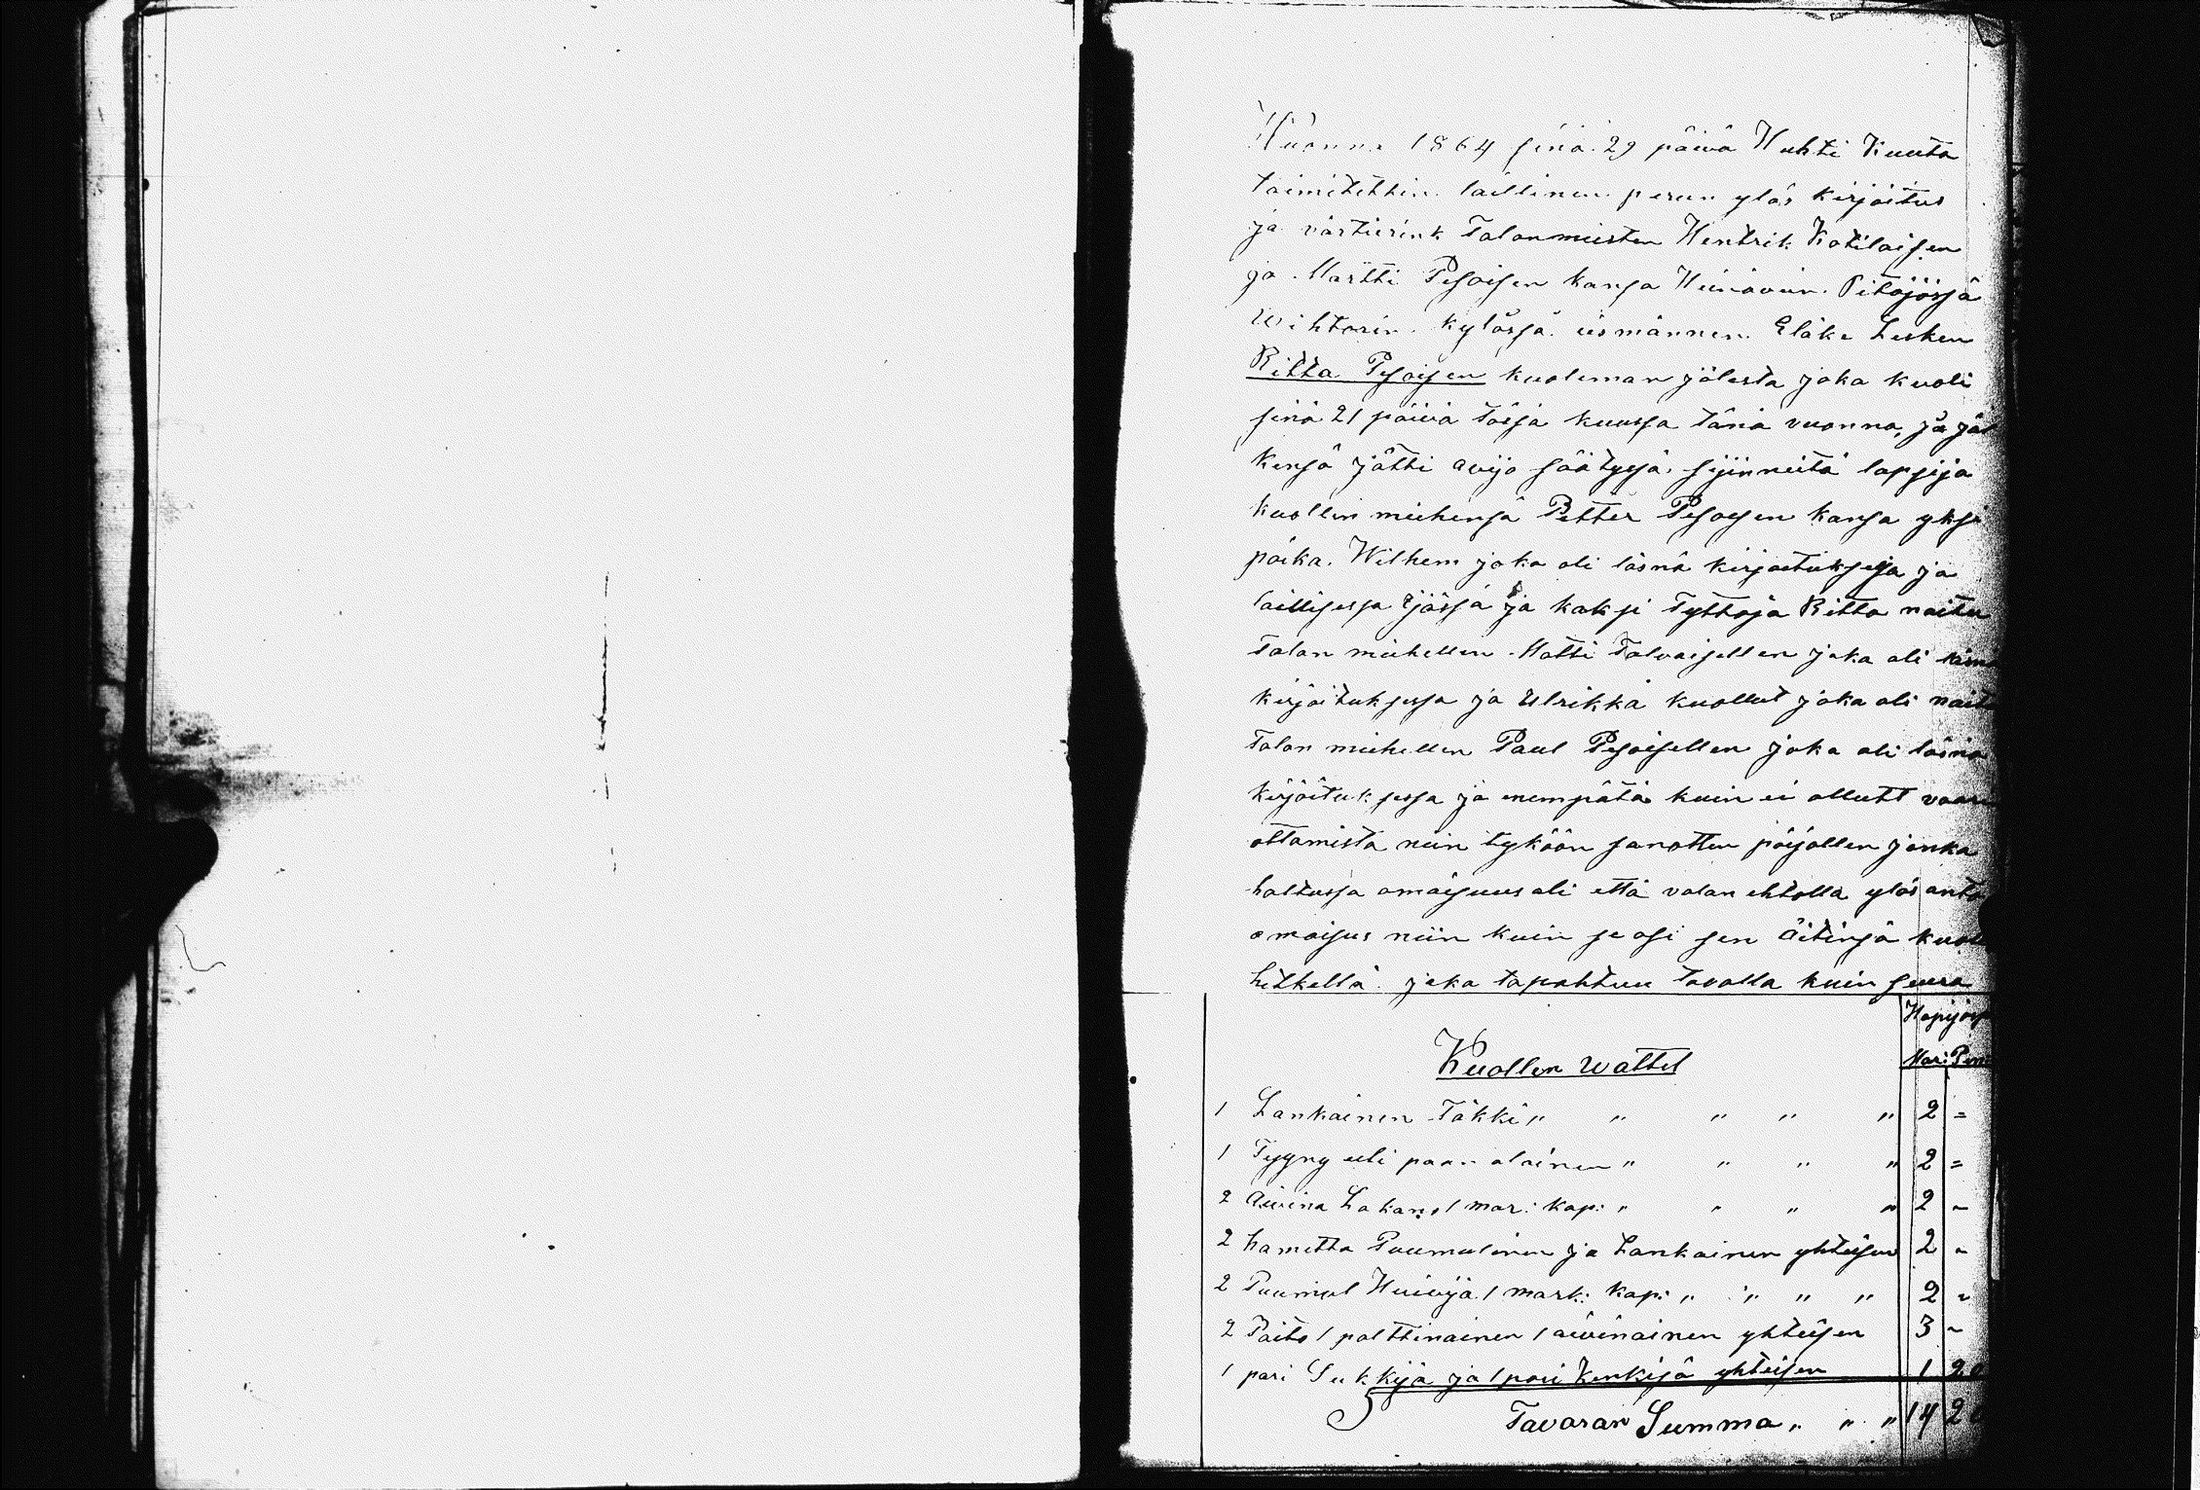 Wuonna 1864 sinä 29 päivä Huhti Kuuta
toimitettin laillinen perun ylös kirjoitus
ja värtierink Talonmiesten Hentrik Kotilaisen
ja Martti Pesoisen kansa Heinävein Pitäjässä
Wihtarin kylässä eismännen Eläke Lesken
Ritta Pesoisen kuoleman jälesta joka kuoli
sinä 21 päivä tässä kuussa tänä vuonna, ja jäl
kensä jätti avijo säätysä sijinneitä lapsija
kuollen miehensä Petter Pesoisen kansa yksi
poika. Wilhem joka oli läsnä kirjoituksesa ja
laillisessa ijässä ja kaksi Tyttöja Ritta naitu
Talon miehellen Matti Tolvaisellen joka oli läsnä
kirjoituksessa ja Ulrikka kuollut joka oli naitu
Talon miehellen Paul Pesoisellen joka oli läsnä
kirjoituksessa ja enempätä kuin ei ollutt vaari
ottamista niin tyköön sanottin pojallen jonka
haltussa omaisuus oli että valan ehtolla ylös anta
omaisus niin kuin se osi sen äitinsä kuol
hetkellä joka tapahtuu tavalla kuin seura
Hopijassa
Kuollen wattet
Mar: Pen
1 Lankainen Täkki " " " " " 2 =
1 Tyyny eli pään alainen " " " " 2 =
2 Aivina Lakana 1 mar: kap: " " " " 2 "
2 hametta Puumulinen ja Lankainen yhteisen 2 "
2 Puumul Huivija 1 mark: kap: " " " " 2 "
2 Paito 1 palttinainen 1 aivinainen yhteisen 3 "
1 pari Sukkija ja 1 pari Kenkijä yhteisen 1 20
Tavaran Summa " " " 14 20